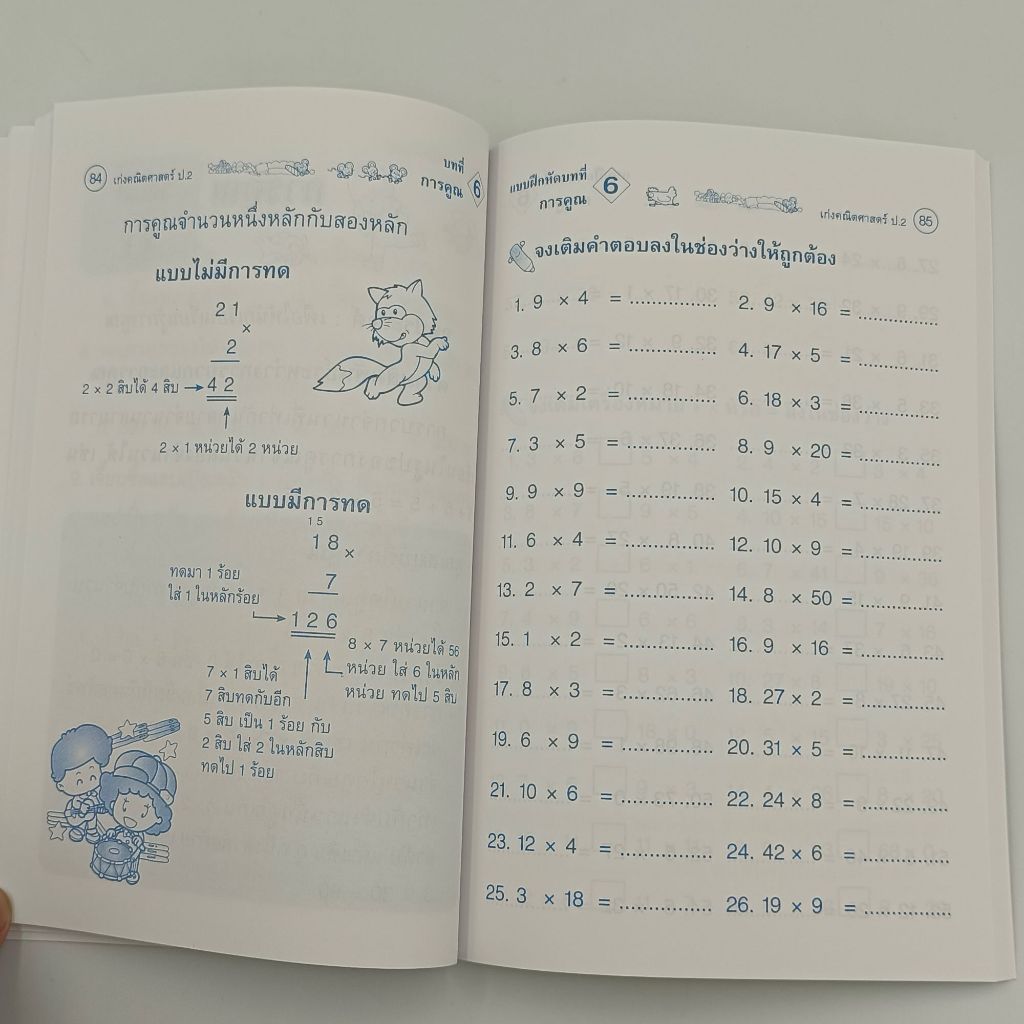 84 เก่งคณิตศาสตร์ ป.2
บทที่ 6
การคูณ
การคูณจำนวนหนึ่งหลักกับสองหลัก
แบบไม่มีการทด
21
×
2
2 × 2 สิบได้ 4 สิบ → 42
2 × 1 หน่วยได้ 2 หน่วย
แบบมีการทด
15
18
×
7
ทดมา 1 ร้อย
ใส่ 1 ในหลักร้อย
126
8 × 7 หน่วยได้ 56
หน่วย ใส่ 6 ในหลัก
หน่วย ทดไป 5 สิบ
7 × 1 สิบได้
7 สิบทดกับอีก
5 สิบ เป็น 1 ร้อย กับ
2 สิบ ใส่ 2 ในหลักสิบ
ทดไป 1 ร้อย
แบบฝึกหัดบทที่ 6
การคูณ
เก่งคณิตศาสตร์ ป.2 85
จงเติมคำตอบลงในช่องว่างให้ถูกต้อง
1. 9 × 4 = ............... 2. 9 × 16 = ...............
3. 8 × 6 = ............... 4. 17 × 5 = ...............
5. 7 × 2 = ............... 6. 18 × 3 = ...............
7. 3 × 5 = ............... 8. 9 × 20 = ...............
9. 9 × 9 = ............... 10. 15 × 4 = ...............
11. 6 × 4 = ............... 12. 10 × 9 = ...............
13. 2 × 7 = ............... 14. 8 × 50 = ...............
15. 1 × 2 = ............... 16. 9 × 16 = ...............
17. 8 × 3 = ............... 18. 27 × 2 = ...............
19. 6 × 9 = ............... 20. 31 × 5 = ...............
21. 10 × 6 = ............... 22. 24 × 8 = ...............
23. 12 × 4 = ............... 24. 42 × 6 = ...............
25. 3 × 18 = ............... 26. 19 × 9 = ...............